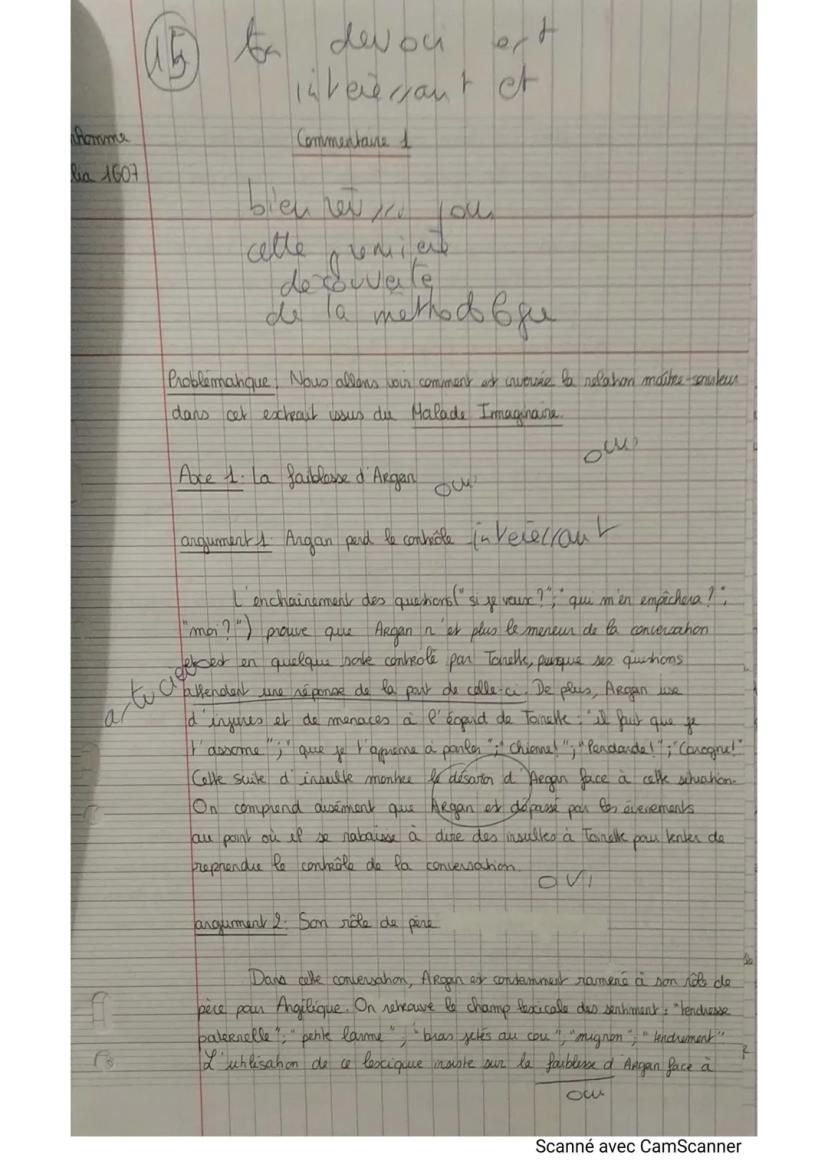 15 ton devoir est
intéressant et
Commentaire 1
1607
bien réussi pour
cette première
découverte
de la méthodologie
Problématique: Nous allons voir comment est inversée la relation maître-serviteur
dans cet extrait issus du Malade Imaginaire.
oui
Axe 1: La faiblesse d'Argan oui
argument 1: Argan perd le contrôle intéressant
L'enchainement des questions ("si je veux?"; "qui m'en empêchera?";
"moi?") prouve que Argan n'est plus le meneur de la conversation
et est en quelque sorte contrôlé par Toinette, puisque ses questions
attendent une réponse de la part de celle-ci. De plus, Argan use
d'injures et de menaces à l'égard de Toinette: "il faut que je
l'assome"; "que je t'apprenne à parler"; "Chienne!"; "Pendarde!"; "Carogne!"
Cette suite d'insulte montre le désarroi d'Argan face à cette situation.
On comprend aisément que Argan est dépassé par les évenements
au point où il se rabaisse à dire des insultes à Toinette pour tenter de
reprendre le contrôle de la conversation.
OUI
argument 2: Son rôle de père
Dans cette conversation, Argan est constamment ramené à son rôle de
père pour Angélique. On retrouve le champ lexicale des sentiment: "tendresse
paternelle"; "petite larme"; "bras jetés au cou"; "mignon"; "tendrement"
L'utilisation de ce lexique insiste sur la faiblesse d'Argan face à
oui
Scanné avec CamScanner